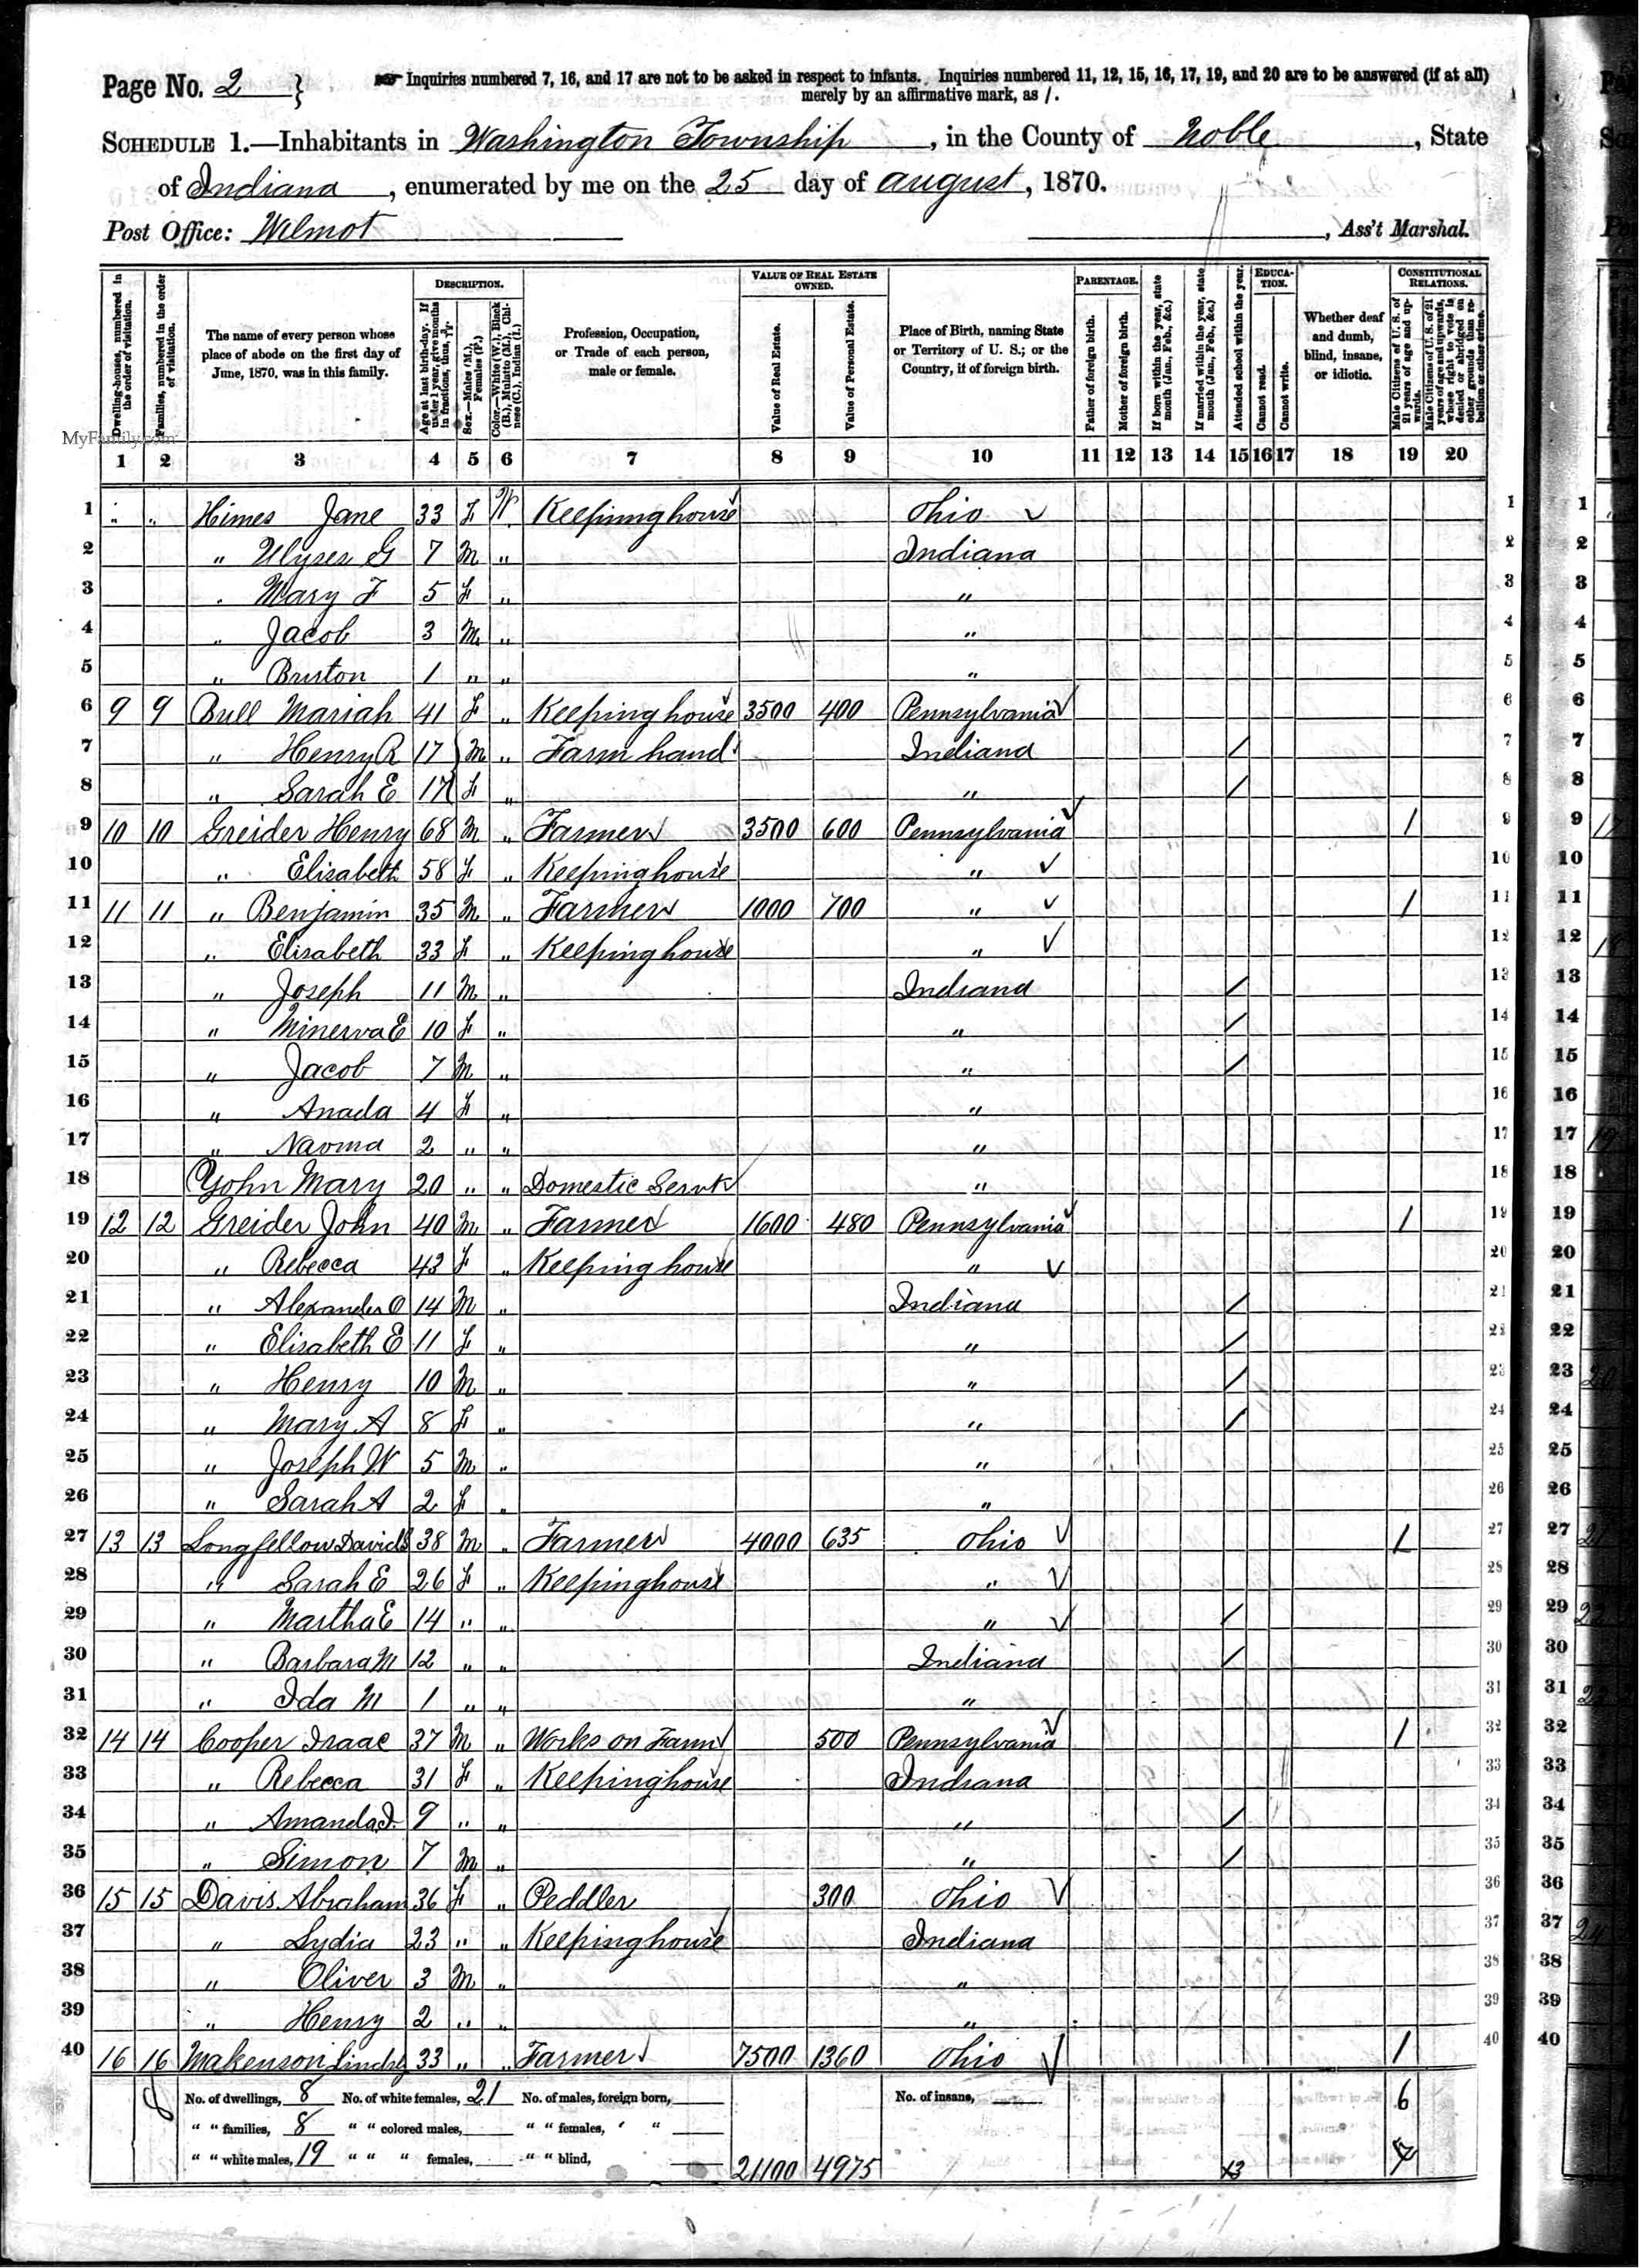 Page No. 2 }
Inquiries numbered 7, 16, and 17 are not to be asked in respect to infants. Inquiries numbered 11, 12, 15, 16, 17, 19, and 20 are to be answered (if at all)
merely by an affirmative mark, as /.
SCHEDULE 1.—Inhabitants in Washington Township, in the County of Noble, State
of Indiana, enumerated by me on the 25 day of August, 1870.
Post Office: Wilmot
, Ass't Marshal.
Dwelling-houses, numbered in the order of visitation.
Families, numbered in the order of visitation.
The name of every person whose place of abode on the first day of June, 1870, was in this family.
DESCRIPTION.
Age at last birth-day. If under 1 year, give months in fractions, thus, 3/12.
Sex.—Males (M.), Females (F.)
Color.—White (W.), Black (B.), Mulatto (M.), Chinese (C.), Indian (I.)
Profession, Occupation, or Trade of each person, male or female.
VALUE OF REAL ESTATE OWNED.
Value of Real Estate.
Value of Personal Estate.
Place of Birth, naming State or Territory of U. S.; or the Country, if of foreign birth.
PARENTAGE.
Father of foreign birth.
Mother of foreign birth.
If born within the year, state month (Jan. Feb., &c.)
If married within the year, state month (Jan. Feb., &c.)
Attended school within the year.
EDUCATION.
Cannot read.
Cannot write.
Whether deaf and dumb, blind, insane, or idiotic.
CONSTITUTIONAL RELATIONS.
Male Citizens of U. S. of 21 years of age and upwards.
Male Citizens of U. S. of 21 years of age and upwards, whose right to vote is denied or abridged on other grounds than rebellion or other crime.
MyFamily.com
1 2 3 4 5 6 7 8 9 10 11 12 13 14 15 16 17 18 19 20
1 " " Himes Jane 33 F W Keeping house Ohio 1
2 " Ulyses G 7 M " Indiana 2
3 " Mary F 5 F " " 3
4 " Jacob 3 M " " 4
5 " Burton 1 " " " 5
6 9 9 Bull Mariah 41 F " Keeping house 3500 400 Pennsylvania 6
7 " Henry R 17 M " Farm hand Indiana / 7
8 " Sarah E 17 F " " / 8
9 10 10 Greider Henry 68 M " Farmer 3500 600 Pennsylvania / 9
10 " Elisabeth 58 F " Keeping house " 10
11 11 11 " Benjamin 35 M " Farmer 1000 700 " / 11
12 " Elisabeth 33 F " Keeping house " 12
13 " Joseph 11 M " Indiana / 13
14 " Minerva E 10 F " " / 14
15 " Jacob 7 M " " / 15
16 " Anada 4 F " " 16
17 " Naoma 2 " " " 17
18 Yohn Mary 20 " " Domestic Servt " 18
19 12 12 Greider John 40 M " Farmer 1600 480 Pennsylvania / 19
20 " Rebecca 43 F " Keeping house " 20
21 " Alexander O 14 M " Indiana / 21
22 " Elisabeth E 11 F " " / 22
23 " Henry 10 M " " / 23
24 " Mary A 8 F " " / 24
25 " Joseph W 5 M " " 25
26 " Sarah A 2 F " " 26
27 13 13 Longfellow David S 38 M " Farmer 4000 635 Ohio / 27
28 " Sarah E 26 F " Keeping house " 28
29 " Martha E 14 " " " / 29
30 " Barbara M 12 " " Indiana / 30
31 " Ida M 1 " " " 31
32 14 14 Cooper Isaac 37 M " Works on Farm 500 Pennsylvania / 32
33 " Rebecca 31 F " Keeping house Indiana 33
34 " Amanda J. 9 " " " / 34
35 " Simon 7 M " " / 35
36 15 15 Davis Abraham 36 F " Peddler 300 Ohio 36
37 " Lydia 23 " " Keeping house Indiana 37
38 " Oliver 3 M " " 38
39 " Henry 2 " " " 39
40 16 16 Makenson Lindsy 33 " " Farmer 7500 1360 Ohio / 40
8 No. of dwellings, 8 No. of white females, 21 No. of males, foreign born, No. of insane, 6
" " families, 8 " " colored males, " " females, " "
" " white males, 19 " " " females, " " blind, 21100 4975 13